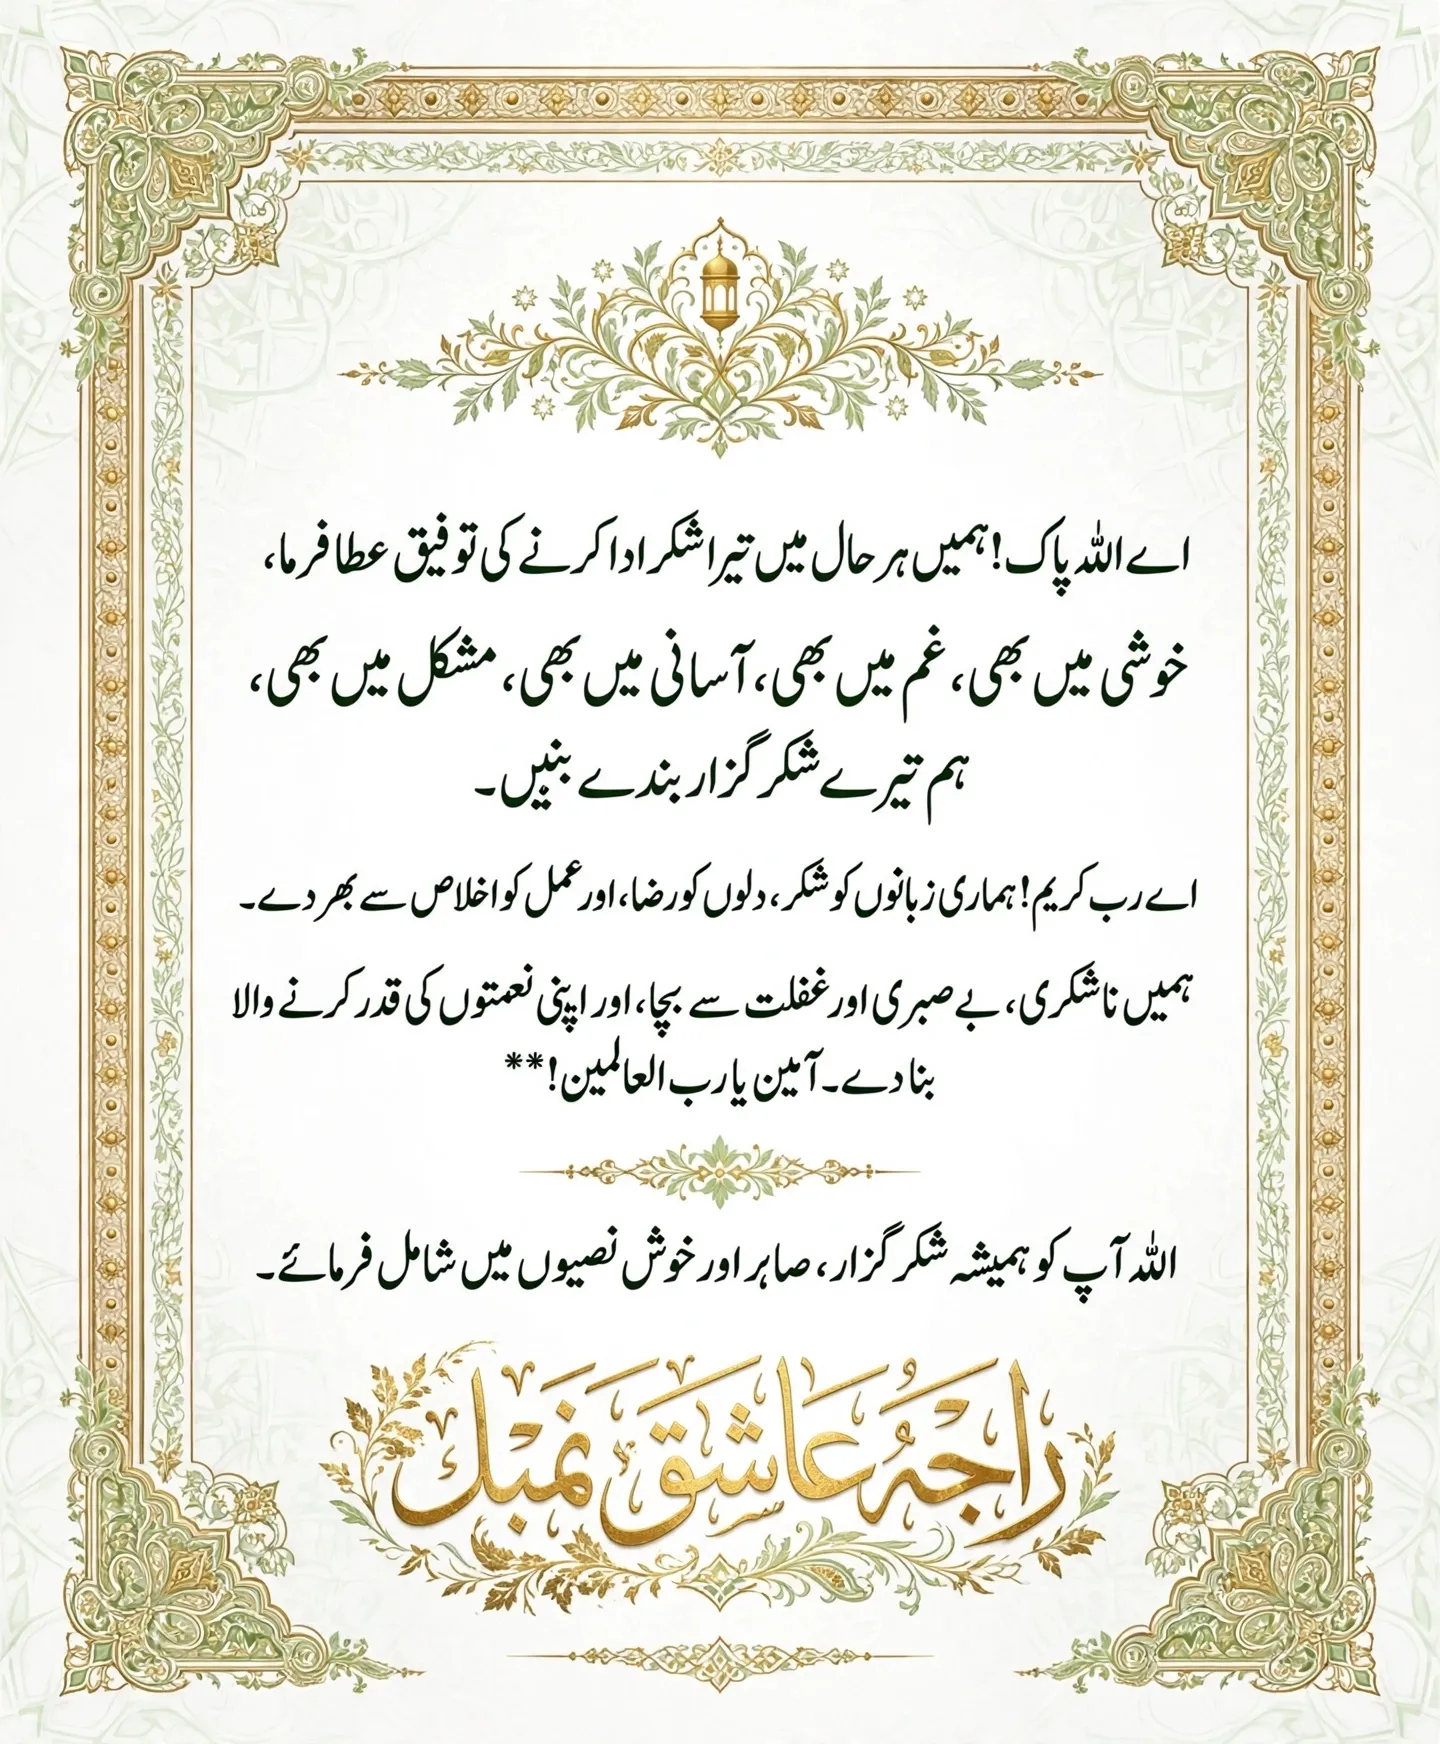 اے اللہ پاک! ہمیں ہر حال میں تیرا شکر ادا کرنے کی توفیق عطا فرما،
خوشی میں بھی، غم میں بھی، آسانی میں بھی، مشکل میں بھی،
ہم تیرے شکر گزار بندے بنیں۔
اے رب کریم! ہماری زبانوں کو شکر، دلوں کو رضا، اور عمل کو اخلاص سے بھر دے۔
ہمیں ناشکری، بے صبری اور غفلت سے بچا، اور اپنی نعمتوں کی قدر کرنے والا
بنا دے۔ آمین یا رب العالمین!**
اللہ آپ کو ہمیشہ شکر گزار، صابر اور خوش نصیبوں میں شامل فرمائے۔
راجہ عاشق نمبل